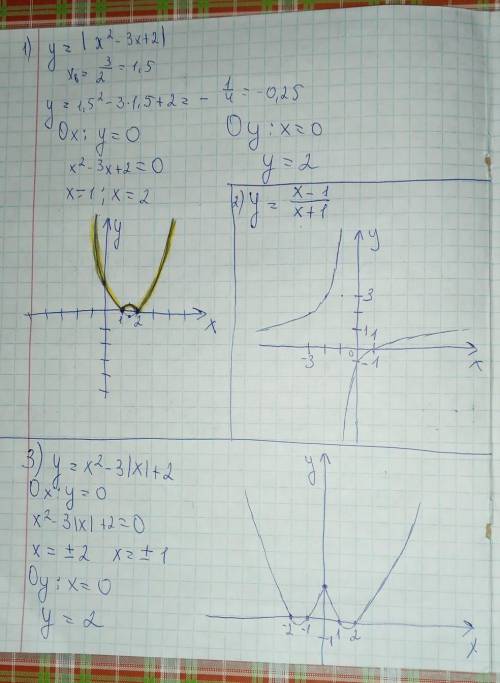 1) y = | x² - 3x + 2 |
x₈ = 3/2 = 1,5
y = 1,5² - 3·1,5 + 2 = - 1/4 = -0,25
Ox: y = 0
x² - 3x + 2 = 0
x = 1 ; x = 2
Oy: x = 0
y = 2
y
1 2
x
2) y = x - 1 / x + 1
y
3
1
1
-3
0
-1
x
3) y = x² - 3|x| + 2
Ox: y = 0
x² - 3|x| + 2 = 0
x = ± 2 x = ± 1
Oy: x = 0
y = 2
y
-2 -1 1 2
-1
x